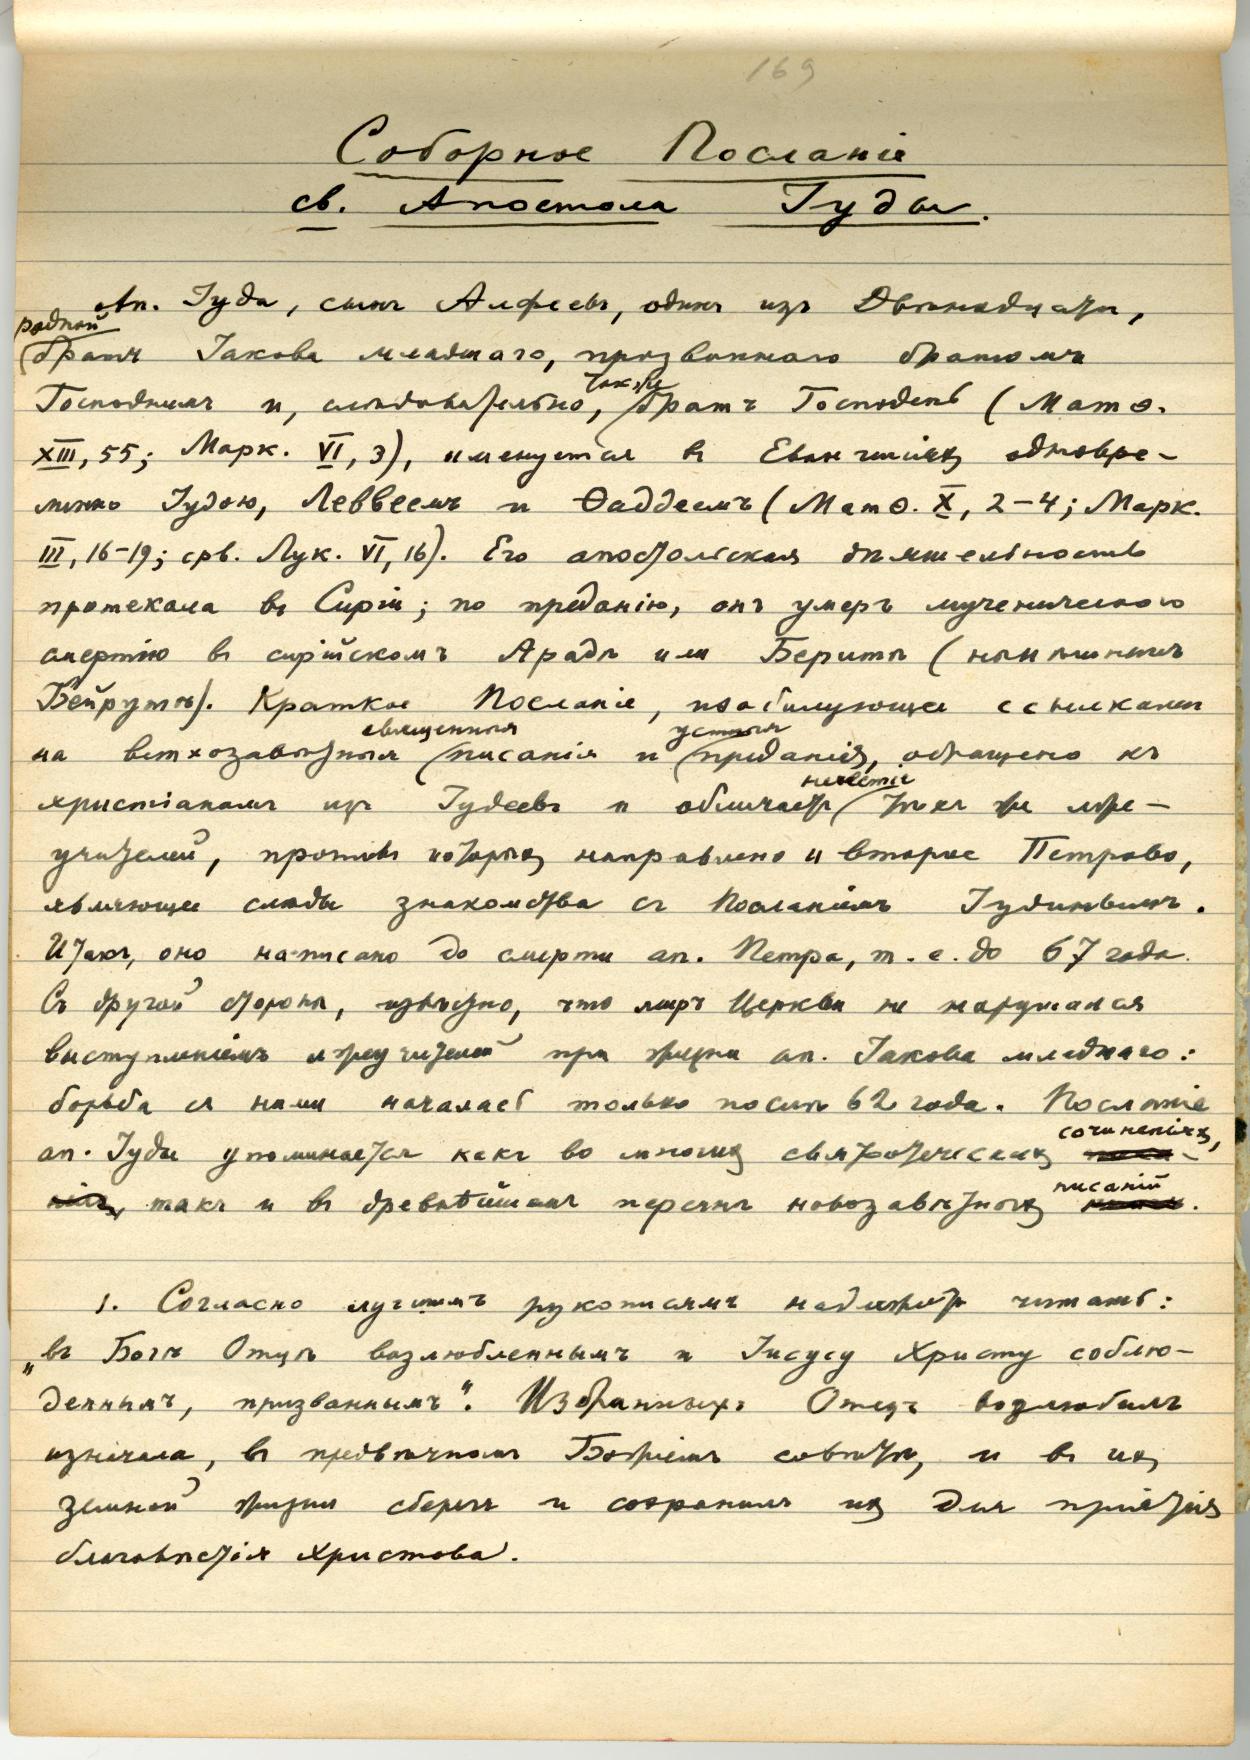 169
Соборное Посланіе
св. Апостола Іуды.
Ап. Іуда, сынъ Алфеевъ, одинъ изъ Двѣнадцати,
родной
братъ Іакова младшаго, прозваннаго братомъ
также
Господнимъ и, слѣдовательно, братъ Господень (Матѳ.
XIII, 55; Марк. VI, 3), именуется въ Евангеліяхъ одновре-
менно Іудою, Леввеемъ и Ѳаддеемъ (Матѳ. X, 2-4; Марк.
III, 16-19; срв. Лук. VI, 16). Его апостольская дѣятельность
протекала въ Сиріи; по преданію, онъ умеръ мученическою
смертію въ сирійскомъ Арадѣ или Беритѣ (нынѣшнемъ
Бейрутѣ). Краткое Посланіе, изобилующее ссылками
священныя устныя
на ветхозавѣтныя писанія и преданія, обращено къ
нечестіе
христіанамъ изъ Іудеевъ и обличаетъ тѣхъ же лже-
учителей, противъ которыхъ направлено и второе Петрово,
являющее слѣды знакомства съ Посланіемъ Іудинымъ.
Итакъ, оно написано до смерти ап. Петра, т. е. до 67 года.
Съ другой стороны, извѣстно, что миръ Церкви не нарушался
выступленіемъ лжеучителей при жизни ап. Іакова младшаго:
борьба съ ними началась только послѣ 62 года. Посланіе
сочиненіяхъ,
ап. Іуды упоминается какъ во многихъ святоотеческихъ
писаній
такъ и въ древнѣйшемъ перечнѣ новозавѣтныхъ .
1. Согласно лучшимъ рукописямъ надлежитъ читать:
„въ Богѣ Отцѣ возлюбленнымъ и Іисусу Христу соблю-
деннымъ, призваннымъ“. Избранныхъ Отецъ возлюбилъ
изначала, въ предвѣчномъ Божіемъ совѣтѣ, и въ ихъ
земной жизни сберегъ и сохранилъ ихъ для пріятія
благовѣстія Христова.